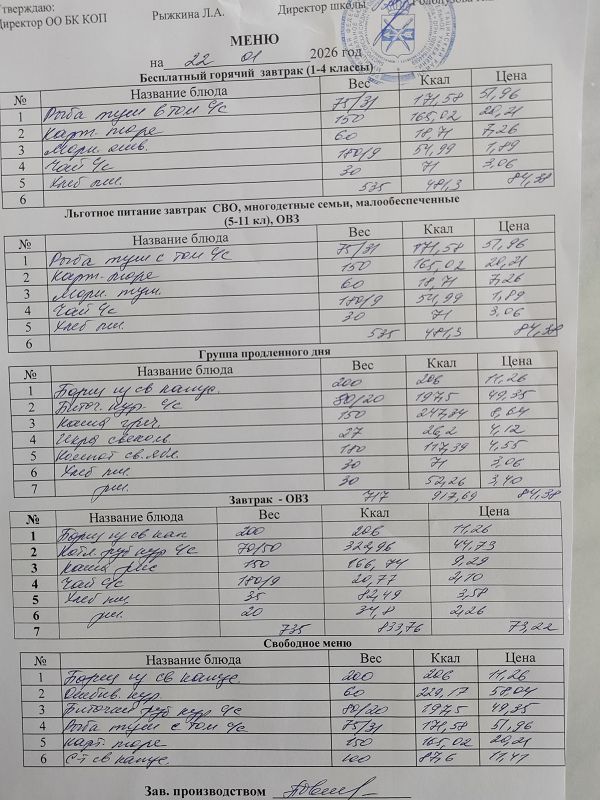 тверждаю:
Директор ОО БК КОП Рыжкина Л.А. Директор школы
МЕНЮ
на 22 01 2026 год
Бесплатный горячий завтрак (1-4 классы)
№ Название блюда Вес Ккал Цена
1 Рыба туш в том ч/с 75/31 171,58 51,96
2 Карт. пюре 150 165,02 20,21
3 Морк. отв. 60 18,71 7,26
4 Чай ч/с 180/9 54,99 1,89
5 Хлеб пш. 30 71 3,06
6 535 481,3 84,38
Льготное питание завтрак СВО, многодетные семьи, малообеспеченные
(5-11 кл), ОВЗ
№ Название блюда Вес Ккал Цена
1 Рыба туш с том ч/с 75/31 171,58 51,96
2 Карт. пюре 150 165,02 20,21
3 Морк. туш. 60 18,71 7,26
4 Чай ч/с 180/9 54,99 1,89
5 Хлеб пш. 30 71 3,06
6 535 481,3 84,38
Группа продленного дня
№ Название блюда Вес Ккал Цена
1 Борщ из св капус. 200 206 11,26
2 Биточ. кур. ч/с 80/20 197,5 49,35
3 Каша греч. 150 247,34 8,64
4 Икра свеколь. 27 26,2 4,12
5 Компот св. ябл. 180 117,39 4,55
6 Хлеб пш. 30 71 3,06
7 рж. 30 52,26 3,40
717 917,69 84,38
Завтрак - ОВЗ
№ Название блюда Вес Ккал Цена
1 Борщ из св кап 200 206 11,26
2 Котл. руб кур ч/с 70/50 322,96 44,73
3 Каша рис 150 166,74 9,29
4 Чай ч/с 180/9 20,77 2,10
5 Хлеб пш. 35 82,49 3,58
6 рж. 20 34,8 2,26
7 735 833,76 73,22
Свободное меню
№ Название блюда Вес Ккал Цена
1 Борщ из св капус. 200 206 11,26
2 Отбив. кур. 60 229,17 58,04
3 Биточки руб кур ч/с 80/20 197,5 49,35
4 Рыба туш с том ч/с 75/31 171,58 51,96
5 Карт. пюре 150 165,02 20,21
6 С-т св капус. 100 87,6 11,41
Зав. производством